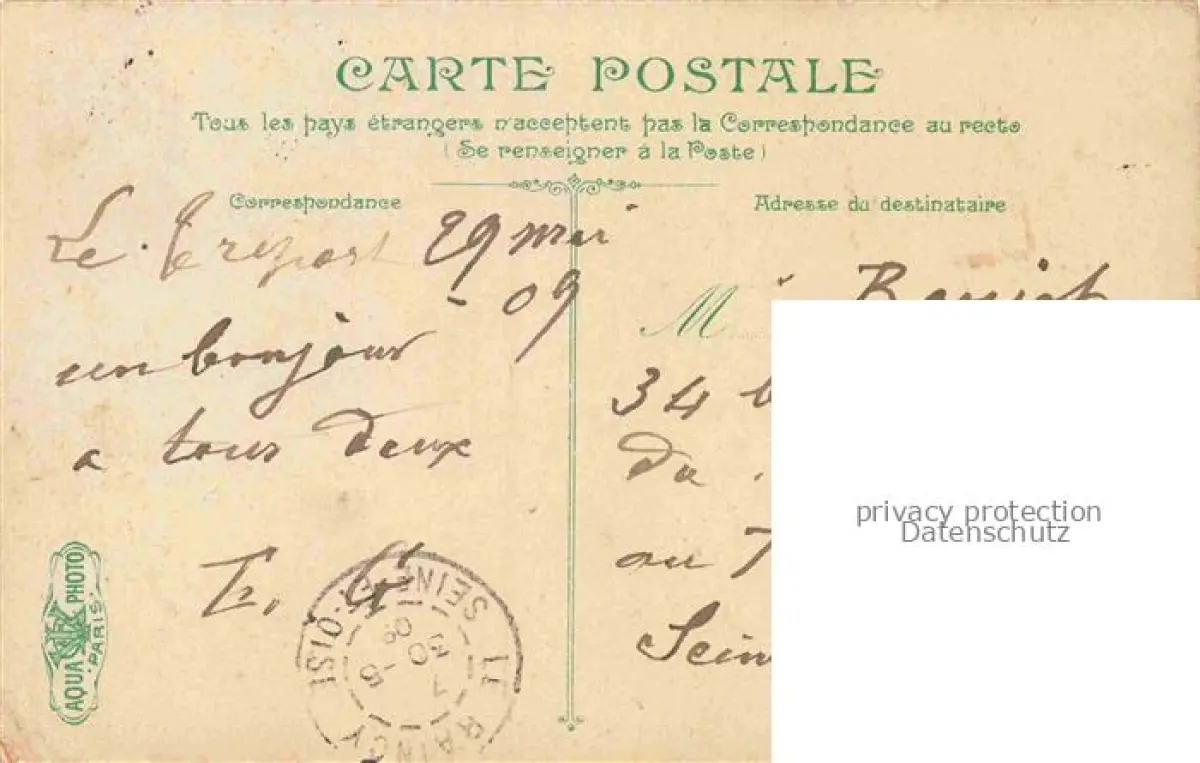 CARTE POSTALE
Tous les pays étrangers n'acceptent pas la Correspondance au recto
(Se renseigner à la Poste)
Correspondance
Adresse du destinataire
Le Treport 29 mai
- 09
un bonjour
a tous deux
E. G
M
34
Du
au
Sein
AQUA PHOTO
PARIS
LE RAINCY
SEINE-ET-OISE
7
30 -5
09
privacy protection
Datenschutz